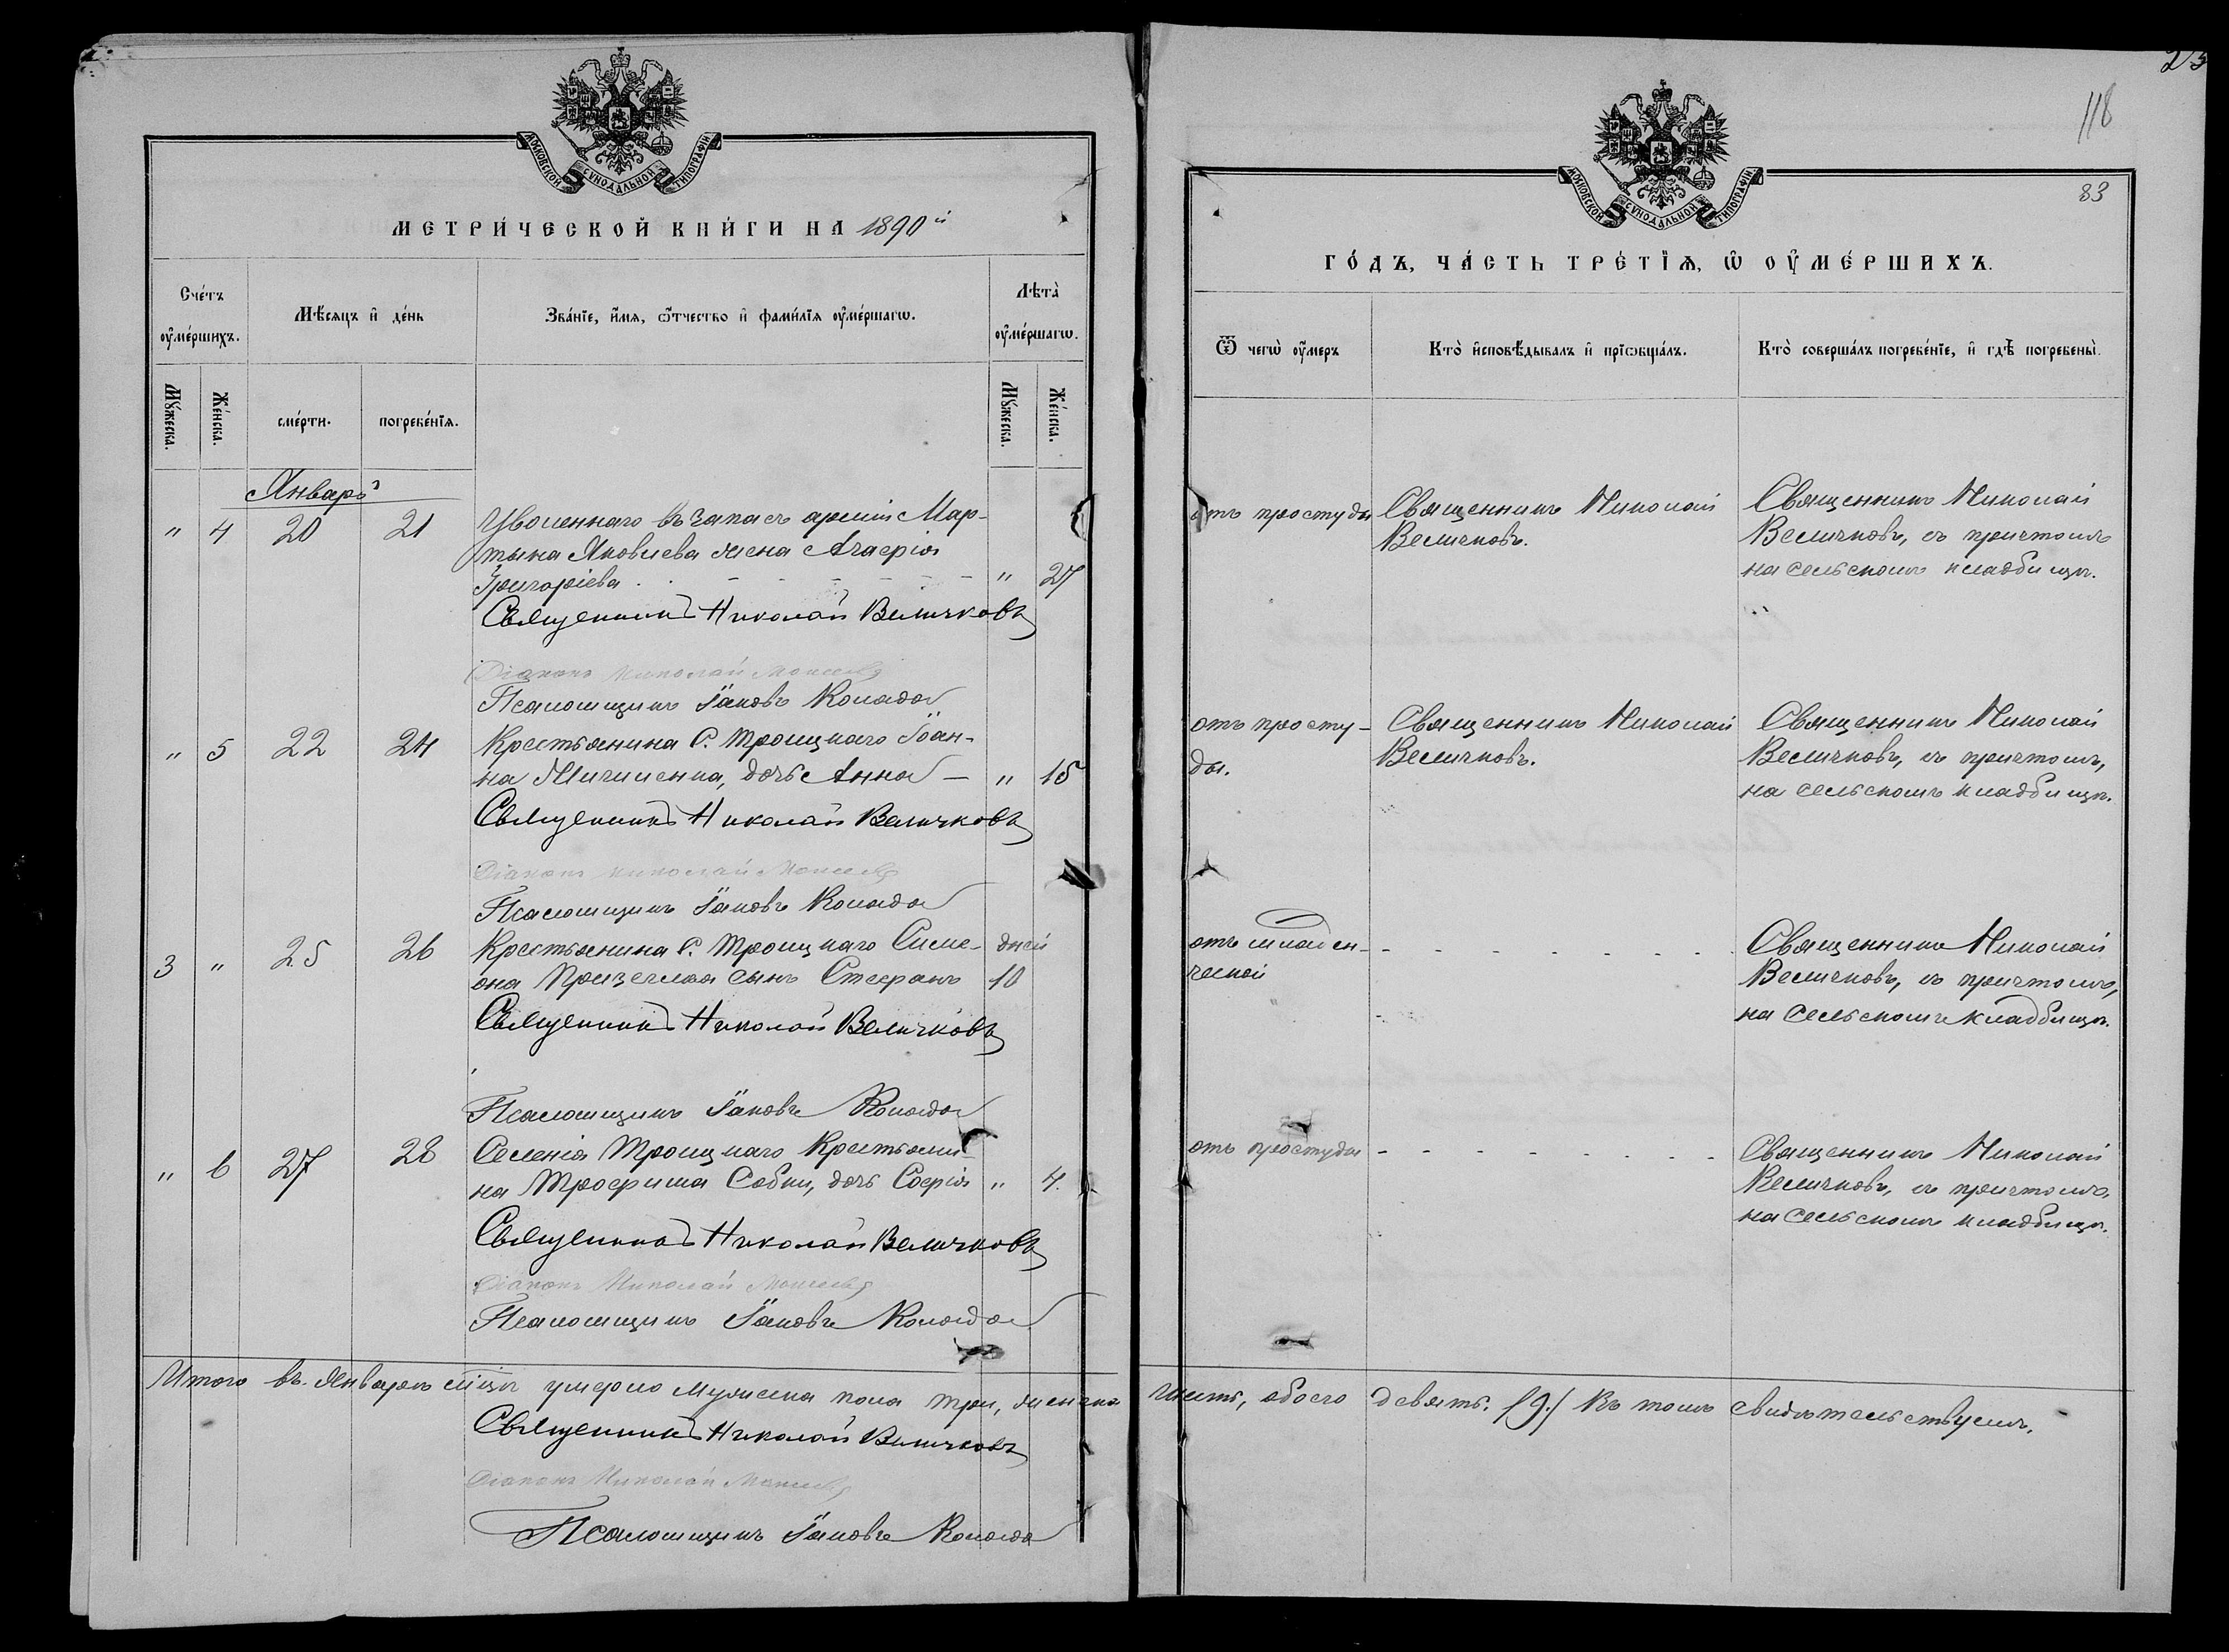 23
118
83
МОСКОВСКОЙ СѴНОДАЛЬНОЙ ТИПОГРАФІИ
МЕТРИ́ЧЕСКОЙ КНИ́ГИ НА 1890й
Сче́тъ ᲂу҆ме́ршихъ.
Мѣ́сяцъ и҆ де́нь
Зва́нїе, и҆́мя, ѻ҆́тчество и҆ фами́лїя ᲂу҆ме́ршагѡ.
Лѣта̀ ᲂу҆ме́ршагѡ.
Мꙋ́жеска.
Же́нска.
сме́рти.
погребе́нїѧ.
Мꙋ́жеска.
Же́нска.
Январь
" 4 20 21 Уволеннаго въ запасъ арміи Мар-
тына Яковлева жена Агафія
Григоріева - - - - - - " 27
Священникъ Николай Величковъ
Діаконъ Николай
Псаломщикъ Іаковъ Коляда
" 5 22 24 Крестьянина С. Троицкаго Іоан-
на дочь Анна — " 15
Священникъ Николай Величковъ
Діаконъ Николай
Псаломщикъ Іаковъ Коляда
3 " 25 26 Крестьянина С. Троицкаго Симе- дней
она сынъ Стефанъ 10
Священникъ Николай Величковъ
Псаломщикъ Іаковъ Коляда
" 6 27 28 Селенія Троицкаго Крестьяни-
на Трофима Собки, дочь Софія " 4.
Священникъ Николай Величковъ
Діаконъ Николай
Псаломщикъ Іаковъ Коляда
Итого въ Январѣ м̃цѣ умерло мужеска пола три, женска
Священникъ Николай Величковъ
Діаконъ Николай
Псаломщикъ Іаковъ Коляда
МОСКОВСКОЙ СѴНОДАЛЬНОЙ ТИПОГРАФІИ
ГО́ДЪ, ЧА́СТЬ ТРЕ́ТЇѦ, Ѡ҆ ОУ҆МЕ́РШИХЪ.
Ѿ чегѡ̀ ᲂу҆́меръ
Кто̀ и҆сповѣ́дывалъ и҆ прїѡбща́лъ.
Кто̀ соверша́лъ погребе́нїе, и҆ гдѣ̀ погребены̀.
отъ простуды Священникъ Николай Священникъ Николай
Величковъ. Величковъ, съ причтомъ
на сельскомъ кладбищѣ.
отъ просту- Священникъ Николай Священникъ Николай
ды. Величковъ. Величковъ, съ причтомъ,
на сельскомъ кладбищѣ.
отъ младен- - - - - - - Священникъ Николай
ческой Величковъ, съ причтомъ,
на сельскомъ кладбищѣ.
отъ простуды - - - - - - - - Священникъ Николай
Величковъ, съ причтомъ,
на сельскомъ кладбищѣ.
шесть, обоего девять. /9./ Въ томъ свидѣтельствуемъ.